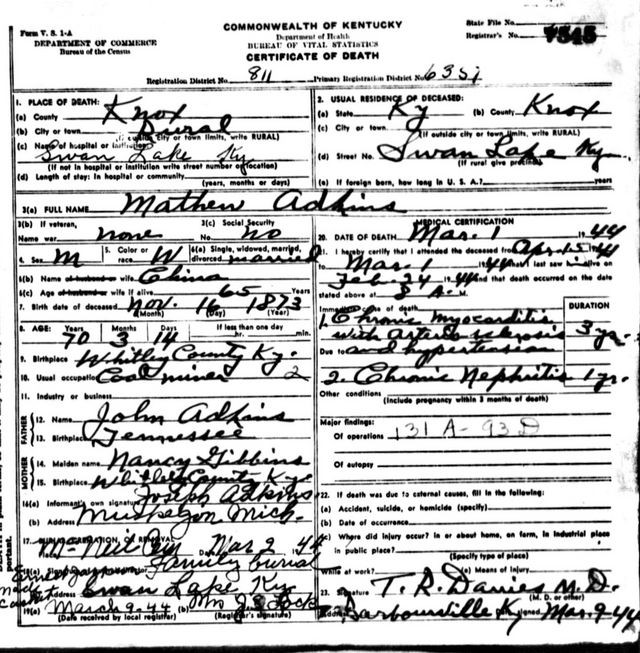 Form V. S. 1-A
DEPARTMENT OF COMMERCE
Bureau of the Census
COMMONWEALTH OF KENTUCKY
Department of Health
BUREAU OF VITAL STATISTICS
CERTIFICATE OF DEATH
State File No.
Registrar's No. 7545
Registration District No. 811 Primary Registration District No. 635
1. PLACE OF DEATH:
(a) County Knox
(b) City or town Rural
(If outside city or town limits, write RURAL)
(c) Name of hospital or institution:
Swan Lake Ky
(If not in hospital or institution write street number or location)
(d) Length of stay: In hospital or community (years, months or days)
2. USUAL RESIDENCE OF DECEASED:
(a) State Ky (b) County Knox
(c) City or town
(If outside city or town limits, write RURAL)
(d) Street No. Swan Lake Ky
(If rural give precinct)
(e) If foreign born, how long in U. S. A.? years
3(a) FULL NAME Mathew Adkins
3(b) If veteran, name war none
3(c) Social Security No. no
4. Sex M 5. Color or race W 6(a) Single, widowed, married, divorced married
6(b) Name of husband or wife China
6(c) Age of husband or wife if alive 65 Years
7. Birth date of deceased Nov. 16 1873
(Month) (Day) (Year)
8. AGE: Years Months Days If less than one day
70 3 14 hr. min.
9. Birthplace Whitley County Ky.
10. Usual occupation Coal miner 2
11. Industry or business
FATHER
12. Name John Adkins
13. Birthplace Tennessee
MOTHER
14. Maiden name Nancy Gibbins
15. Birthplace Whitley County Ky.
16(a) Informant's own signature Joseph Adkins
(b) Address Muskegon Mich.
17. BURIAL, CREMATION, OR REMOVAL
Mc Neil Cem Date Mar 2 1944
Family burial
made casket
Address Swan Lake Ky
19(a) March 9-44 (b) Mrs J. S. Lock
(Date received by local registrar) (Registrar's signature)
MEDICAL CERTIFICATION
20. DATE OF DEATH Mar. 1 1944
21. I hereby certify that I attended the deceased from Apr. 15
to Mar. 1 1944 that I last saw him alive on
Feb. 24 1944 and that death occurred on the date
stated above at 8 A. M.
Immediate cause of death DURATION
1. Chronic myocarditis
with arterio sclerosis 3 yr.
Due to and hypertension
2. Chronic Nephritis 1 yr.
Other conditions
(Include pregnancy within 3 months of death)
Major findings:
Of operations 131 A - 93 D
Of autopsy
22. If death was due to external causes, fill in the following:
(a) Accident, suicide, or homicide (specify)
(b) Date of occurrence
(c) Where did injury occur? In or about home, on farm, in industrial place
in public place?
(Specify type of place)
While at work? (e) Means of injury
23. Signature T. R. Davies M.D.
(M. D. or other)
Barbourville Ky Date signed Mar. 9-44